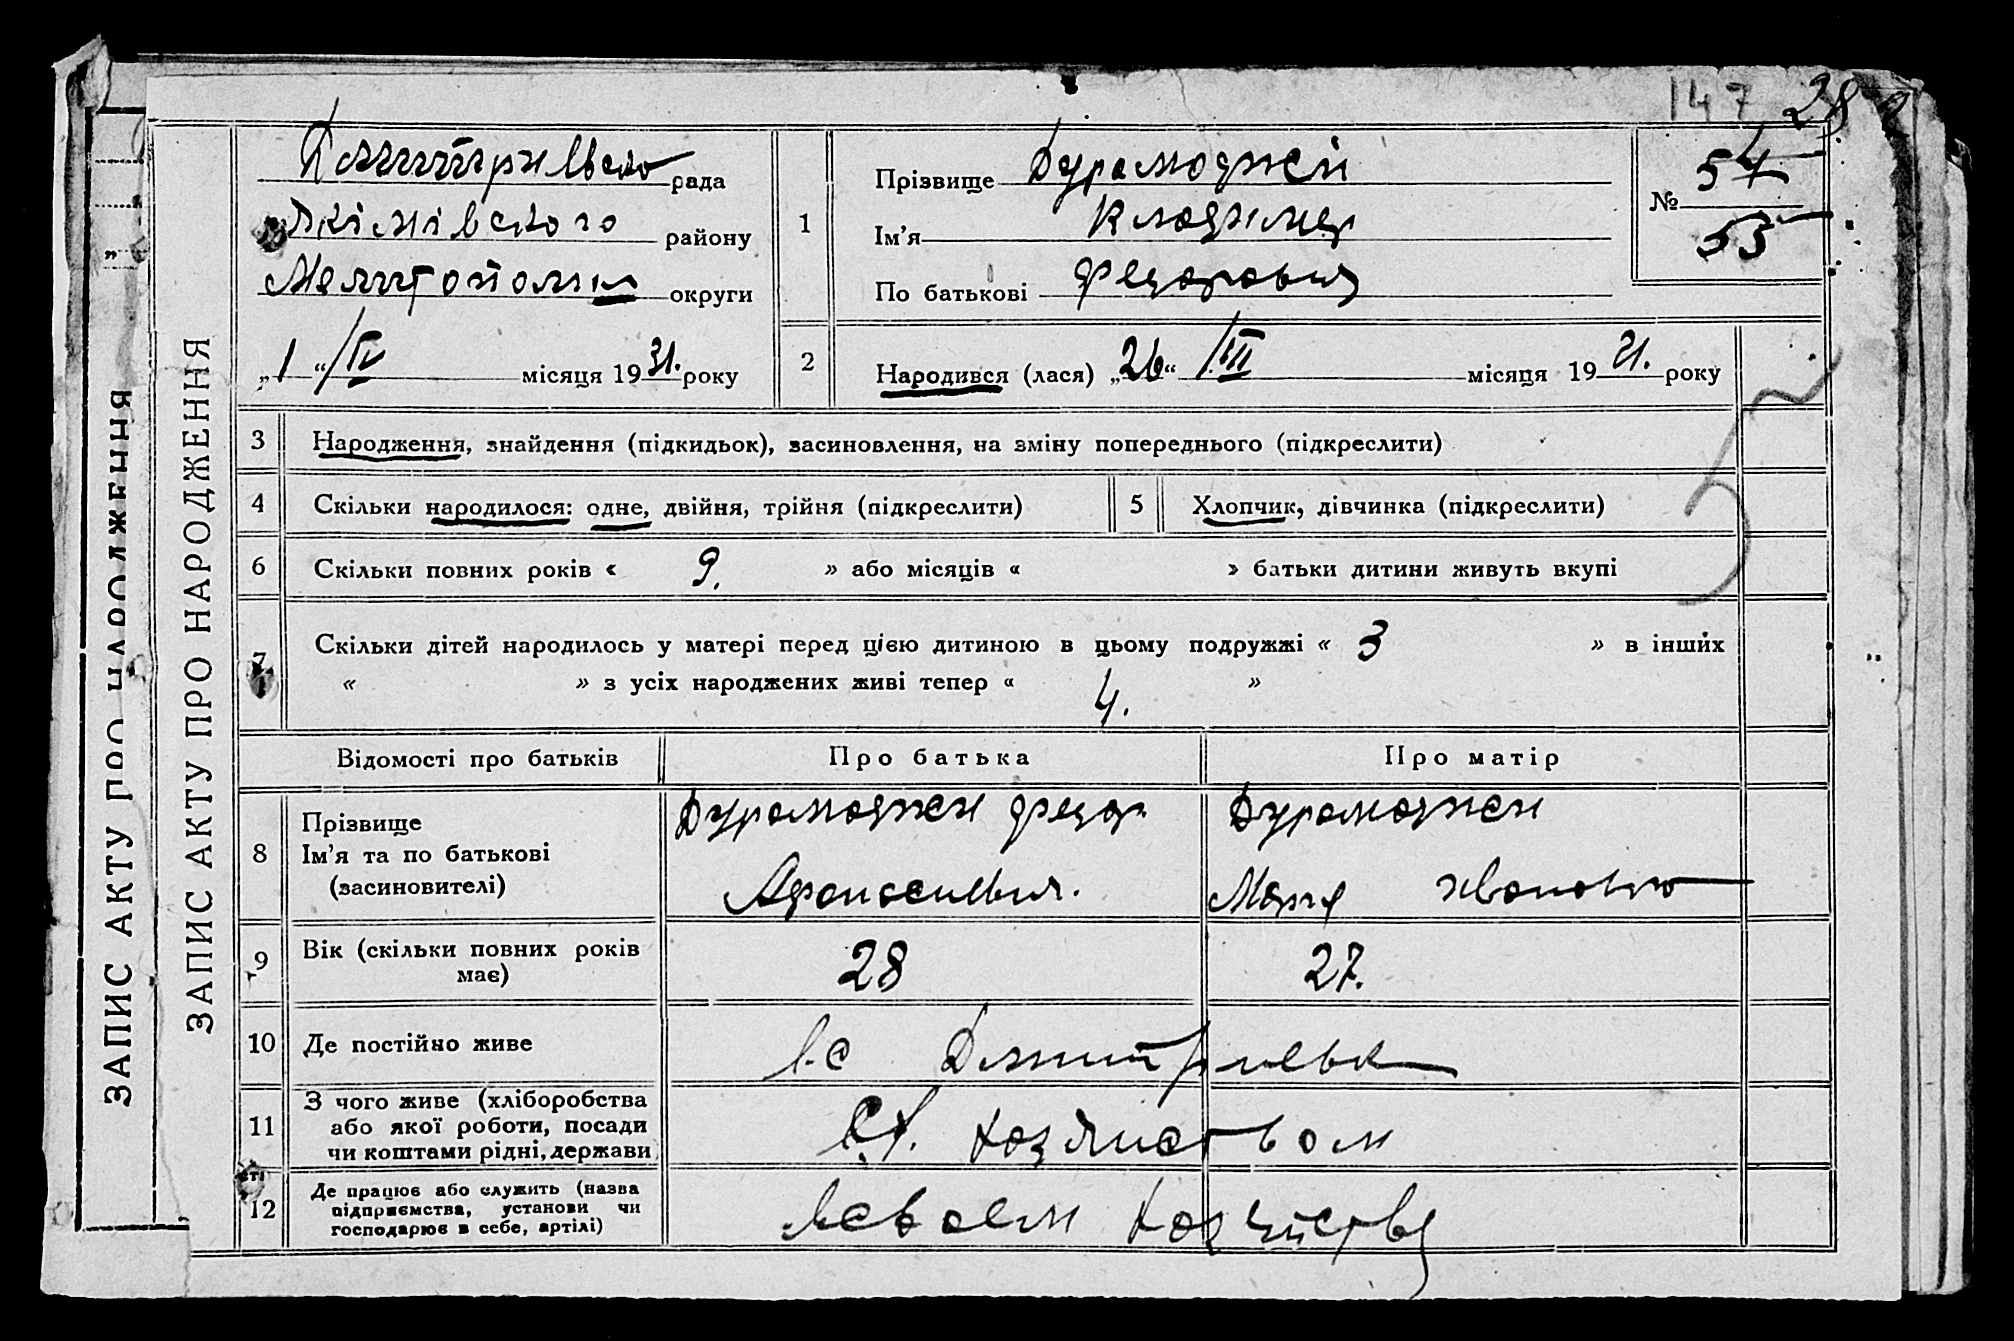 147 28
ЗАПИС АКТУ ПРО НАРОДЖЕННЯ
ЗАПИС АКТУ ПРО НАРОДЖЕННЯ
рада
Якімівского району
округи
„1“ IV місяця 1931. року
1
Прізвище Дурамаджей
Ім’я Владимер
По батькові Федорович
№ 54
53
2
Народився (лася) „26“ III місяця 1931. року
3 Народження, знайдення (підкидьок), засиновлення, на зміну попереднього (підкреслити)
4 Скільки народилося: одне, двійня, трійня (підкреслити)
5 Хлопчик, дівчинка (підкреслити)
6 Скільки повних років « 9. » або місяців « » батьки дитини живуть вкупі
7 Скільки дітей народилось у матері перед цією дитиною в цьому подружжі « 3 » в інших
« » з усіх народжених живі тепер « 4. »
Відомості про батьків Про батька Про матір
8 Прізвище
Ім’я та по батькові
(засиновителі)
Дурамаджей Федор
Афанасиевич.
Дурамаджей
Мария Ивановна
9 Вік (скільки повних років
має)
28 27.
10 Де постійно живе
11 З чого живе (хліборобства
або якої роботи, посади
чи коштами рідні, держави
С.Х. хозяйством
12 Де працює або служить (назва
підприємства, установи чи
господарює в себе, артілі)